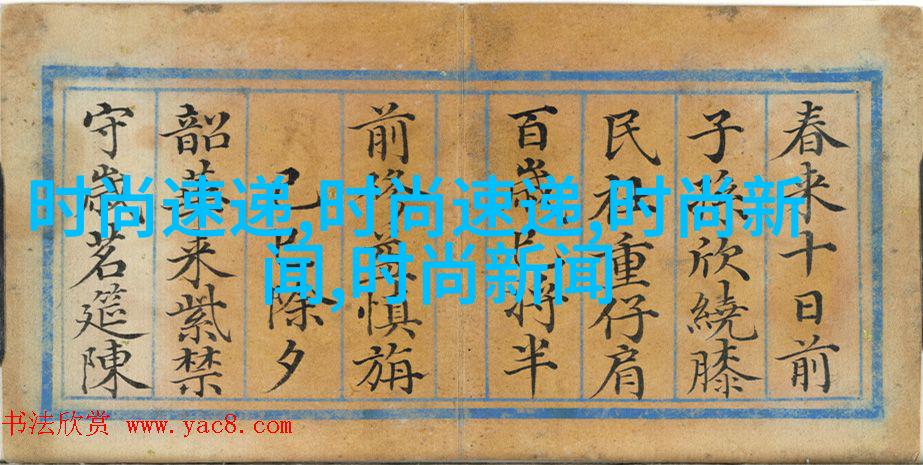 春来十日前
子孫欣繞膝
民社重仔肩
百歲将半
前慎旃
己除夕
韶来紫禁
守歲茗筵陳
时尚速递,时尚速递,时尚新
闻,时尚新闻
书法欣赏 www.yac8.com